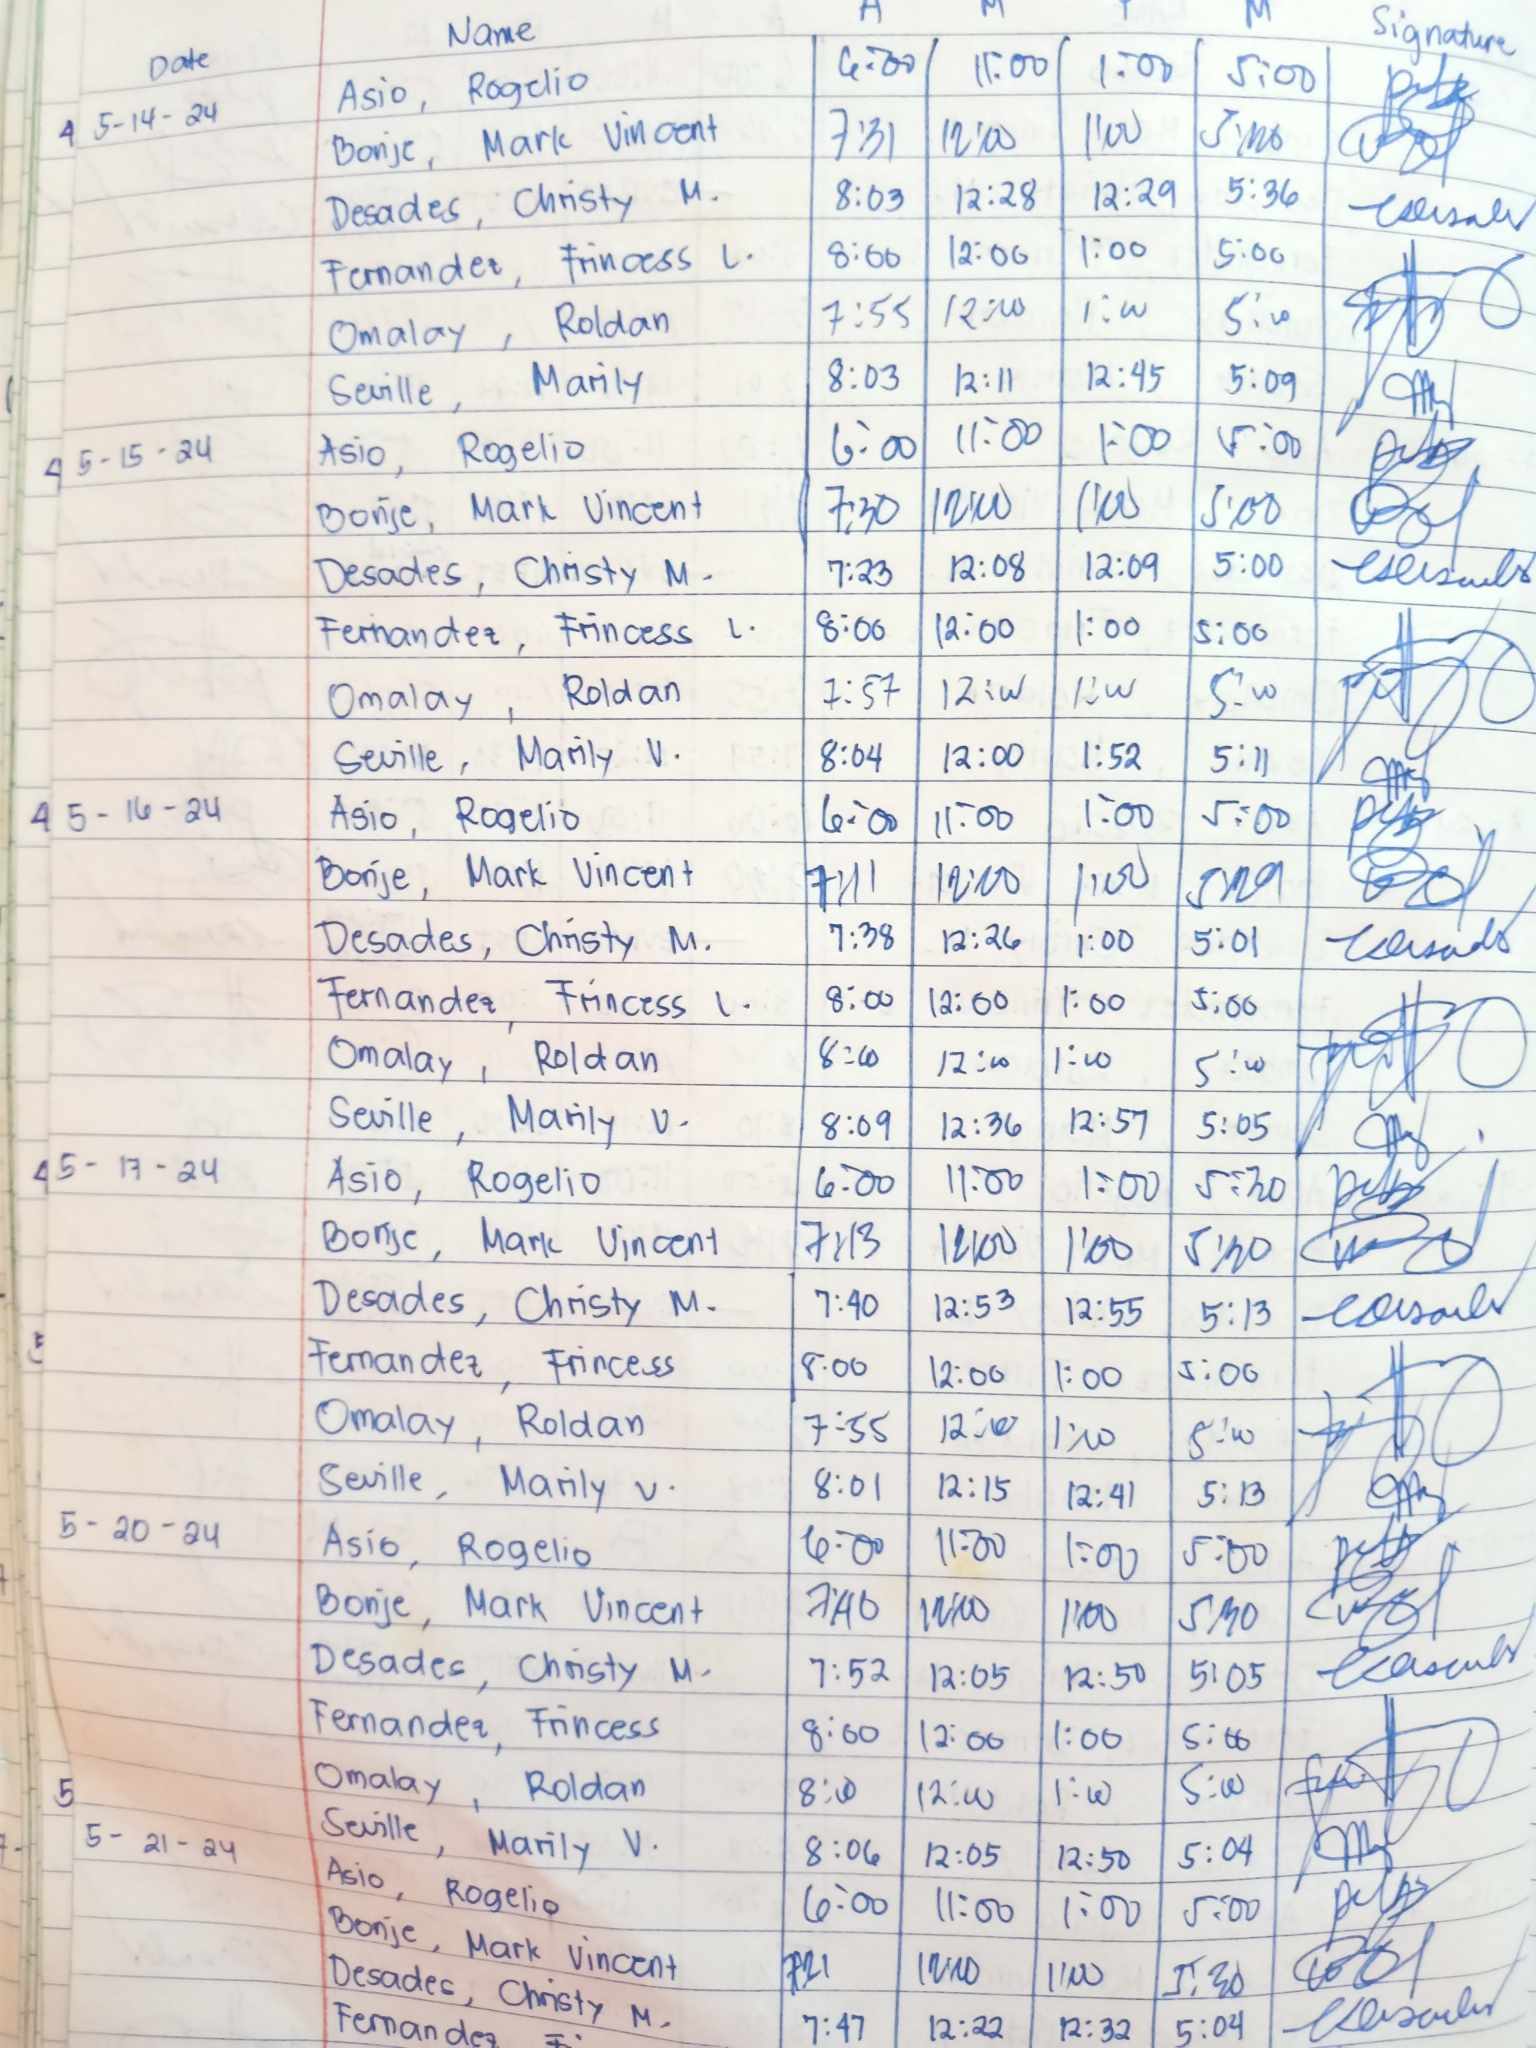 Date Name A M P M Signature
4 5-14-24 Asio, Rogelio 6:00 11:00 1:00 5:00
Bonje, Mark Vincent 7:31 12:00 1:00
Desades, Christy M. 8:03 12:28 12:29 5:36
Fernandez, Frincess L. 8:00 12:00 1:00 5:00
Omalay, Roldan 7:55 12:00 1:00 5:00
Seville, Marily 8:03 12:11 12:45 5:09
4 5-15-24 Asio, Rogelio 6:00 11:00 1:00 5:00
Bonje, Mark Vincent 7:30 12:00 1:00 5:00
Desades, Christy M. 7:23 12:08 12:09 5:00
Fernandez, Frincess L. 8:00 12:00 1:00 5:00
Omalay, Roldan 7:57 12:00 1:00 5:00
Seville, Marily V. 8:04 12:00 1:52 5:11
4 5-16-24 Asio, Rogelio 6:00 11:00 1:00 5:00
Bonje, Mark Vincent 7:11 12:00 1:00 5:29
Desades, Christy M. 7:38 12:26 1:00 5:01
Fernandez, Frincess L. 8:00 12:00 1:00 5:00
Omalay, Roldan 8:00 12:00 1:00 5:00
Seville, Marily V. 8:09 12:36 12:57 5:05
4 5-17-24 Asio, Rogelio 6:00 11:00 1:00 5:30
Bonje, Mark Vincent 7:13 12:00 1:00 5:30
Desades, Christy M. 7:40 12:53 12:55 5:13
Fernandez, Frincess 8:00 12:00 1:00 5:00
Omalay, Roldan 7:55 12:00 1:00 5:00
Seville, Marily V. 8:01 12:15 12:41 5:13
5-20-24 Asio, Rogelio 6:00 11:00 1:00 5:00
Bonje, Mark Vincent 7:40 12:00 1:00 5:30
Desades, Christy M. 7:52 12:05 12:50 5:05
Fernandez, Frincess 8:00 12:00 1:00 5:00
5 Omalay, Roldan 8:00 12:00 1:00 5:00
Seville, Marily V. 8:06 12:05 12:50 5:04
5-21-24 Asio, Rogelio 6:00 11:00 1:00 5:00
Bonje, Mark Vincent 7:21 12:00 1:00 5:30
Desades, Christy M. 7:47 12:22 12:32 5:04
Fernandez